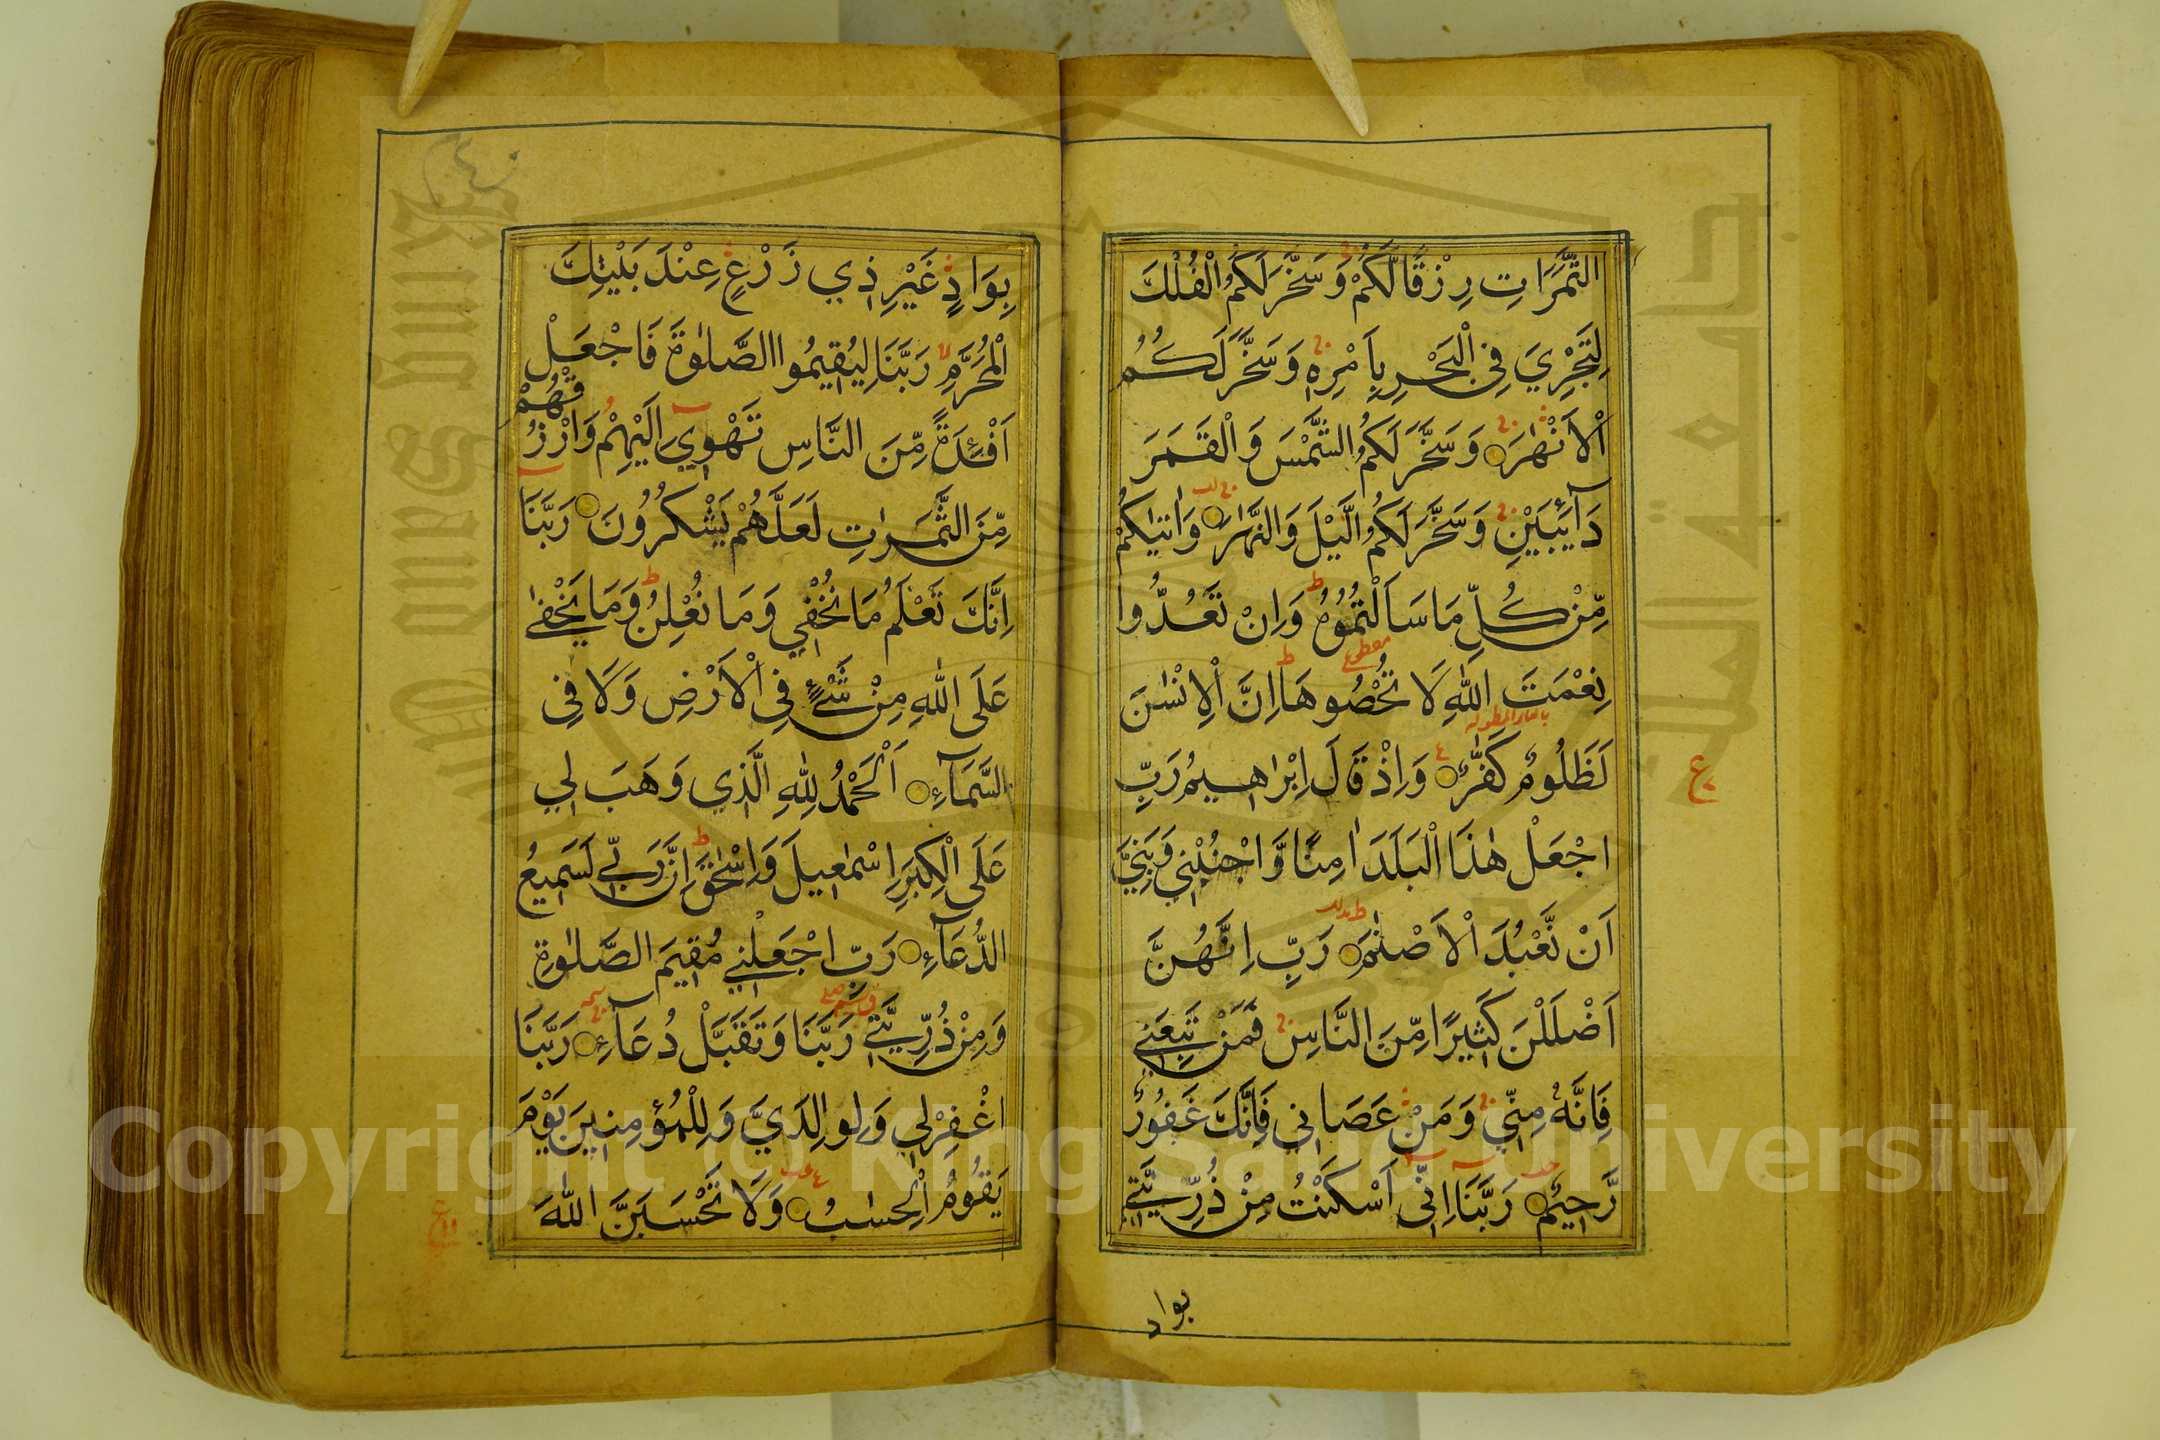 الثَّمَرَاتِ رِزْقًا لَّكُمْ وَسَخَّرَ لَكُمُ الْفُلْكَ
لِتَجْرِيَ فِي الْبَحْرِ بِاَمْرِهٖ وَسَخَّرَ لَكُمُ
الْاَنْهٰرَ وَسَخَّرَ لَكُمُ الشَّمْسَ وَالْقَمَرَ
دَآئِبَيْنِ وَسَخَّرَ لَكُمُ الَّيْلَ وَالنَّهَارَ وَاٰتٰىكُمْ
مِّنْ كُلِّ مَا سَاَلْتُمُوْهُ وَاِنْ تَعُدُّوا
نِعْمَتَ اللّٰهِ لَا تُحْصُوهَا اِنَّ الْاِنْسٰنَ
لَظَلُومٌ كَفَّارٌ وَاِذْ قَالَ اِبْرٰاهِيمُ رَبِّ
اجْعَلْ هٰذَا الْبَلَدَ اٰمِنًا وَّاجْنُبْنِي وَبَنِيَّ
اَنْ نَّعْبُدَ الْاَصْنٰمَ رَبِّ اِنَّهُنَّ
اَضْلَلْنَ كَثِيرًا مِّنَ النَّاسِ فَمَنْ تَبِعَنِي
فَاِنَّهٗ مِنِّي وَمَنْ عَصَانِي فَاِنَّكَ غَفُورٌ
رَّحِيمٌ رَبَّنَا اِنِّي اَسْكَنْتُ مِنْ ذُرِّيَّتِي
بواد
بِوَادٍ غَيْرِ ذِي زَرْعٍ عِنْدَ بَيْتِكَ
الْمُحَرَّمِ رَبَّنَا لِيُقِيمُوا الصَّلٰوةَ فَاجْعَلْ
اَفْئِدَةً مِّنَ النَّاسِ تَهْوِيَ اِلَيْهِمْ وَارْزُقْهُمْ
مِّنَ الثَّمَرٰتِ لَعَلَّهُمْ يَشْكُرُونَ رَبَّنَا
اِنَّكَ تَعْلَمُ مَا نُخْفِي وَمَا نُعْلِنُ وَمَا يَخْفٰى
عَلَى اللّٰهِ مِنْ شَيْءٍ فِي الْاَرْضِ وَلَا فِي
السَّمَآءِ اَلْحَمْدُ لِلّٰهِ الَّذِي وَهَبَ لِي
عَلَى الْكِبَرِ اِسْمٰعِيلَ وَاِسْحٰقَ اِنَّ رَبِّي لَسَمِيعُ
الدُّعَآءِ رَبِّ اجْعَلْنِي مُقِيمَ الصَّلٰوةِ
وَمِنْ ذُرِّيَّتِي رَبَّنَا وَتَقَبَّلْ دُعَآءِ رَبَّنَا
اغْفِرْ لِي وَلِوَالِدَيَّ وَلِلْمُؤْمِنِينَ يَوْمَ
يَقُومُ الْحِسٰبُ وَلَا تَحْسَبَنَّ اللّٰهَ
جامعة الملك
King Saud University
Copyright © King Saud University